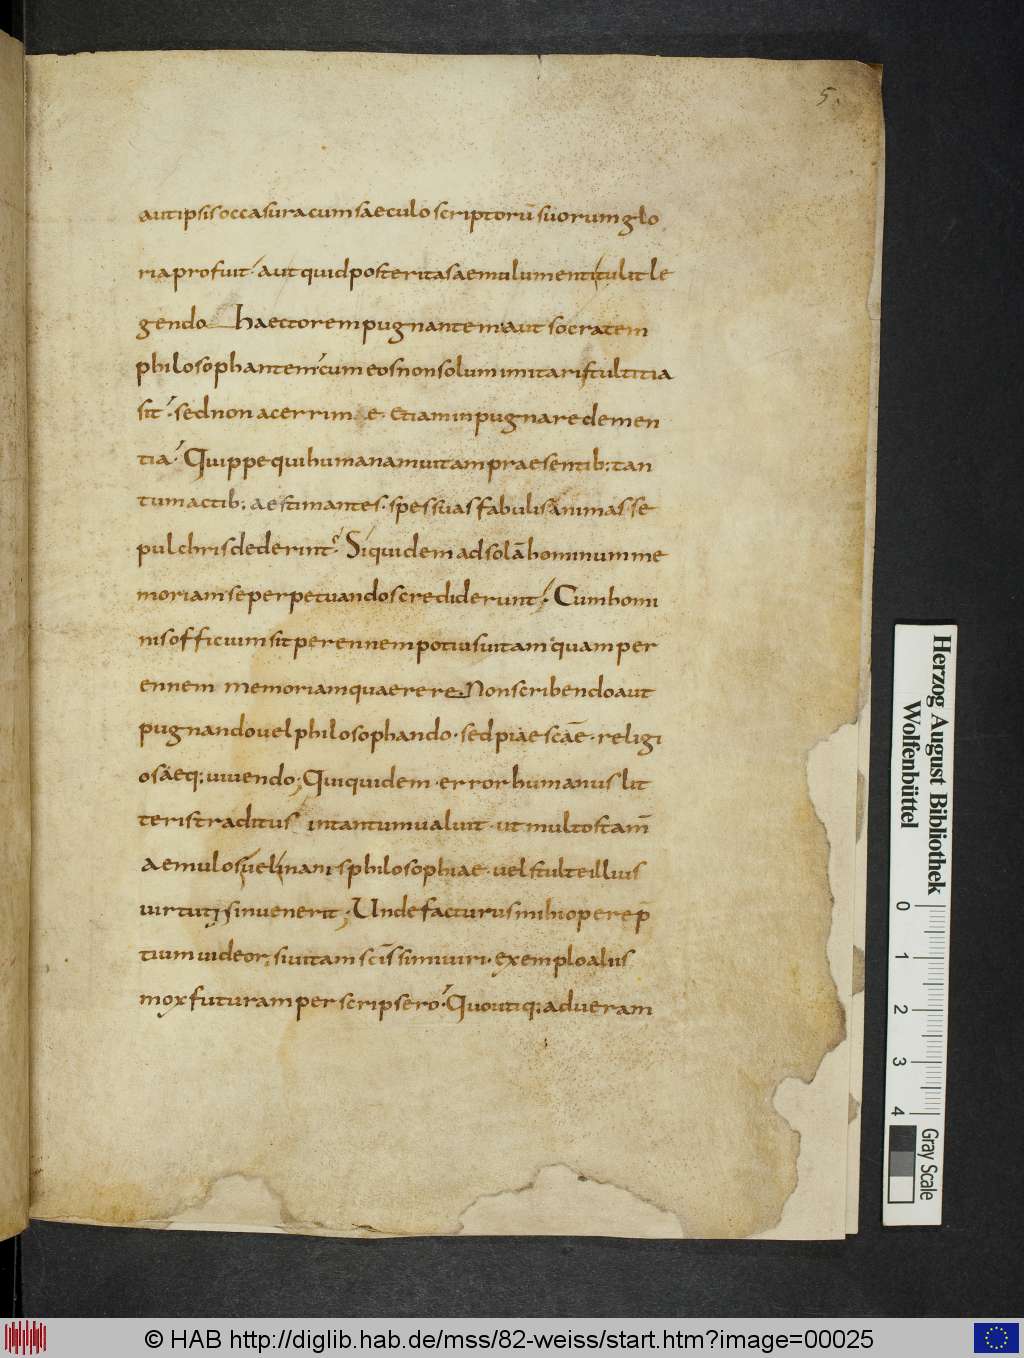 5.
aut ipsis occasura cum saeculo scriptorū suorum glo
ria profuit· aut quid posteritas aemulumenti tulit le
gendo Haectorem pugnantem aut socratem
philosophantem· cum eos non solum imitari stultitia
sit· sed non acerrime etiam inpugnare demen
tia· Qui ppe qui humanam uitam praesentib; tan
tum actib; aestimantes· spes suas fabulis animas se
pulchris dederint· Siquidem ad solā hominum me
moriam se perpetuandos crediderunt· Cum homi
nis officium sit perennem potius uitam quam per
ennem memoriam quaerere Non scribendo aut
pugnando uel philosophando· sed piae scāe· religi
osaeq; uiuendo; Qui quidem· error humanus lit
teris traditus in tantum ualuit· ut multos tam̄
aemulos uel inanis philosophiae· uel stulte illius
uirtutis inuenerit; Unde facturus mihi opere p̄
tium uideor; si uitam scīssimi uiri· exemplo aliis
mox futuram perscripsero· Quo utiq; ad ueram
Herzog August Bibliothek
Wolfenbüttel
0 1 2 3 4
Gray Scale
© HAB http://diglib.hab.de/mss/82-weiss/start.htm?image=00025